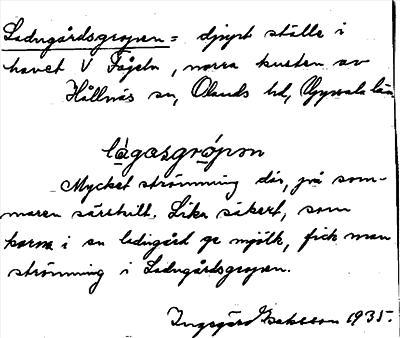 Ladugårdsgropen = djupt ställe i
havet V Fågeln, norra kusten av
Hållnäs sn, Olands hd, Uppsala län
lágasgrópon
Mycket strömming där, på som-
maren särskilt. Lika säkert, som
korna i en ladugård ge mjölk, fick man
strömming i Ladugårdsgropen.
Ingegärd Isaksson 1935.